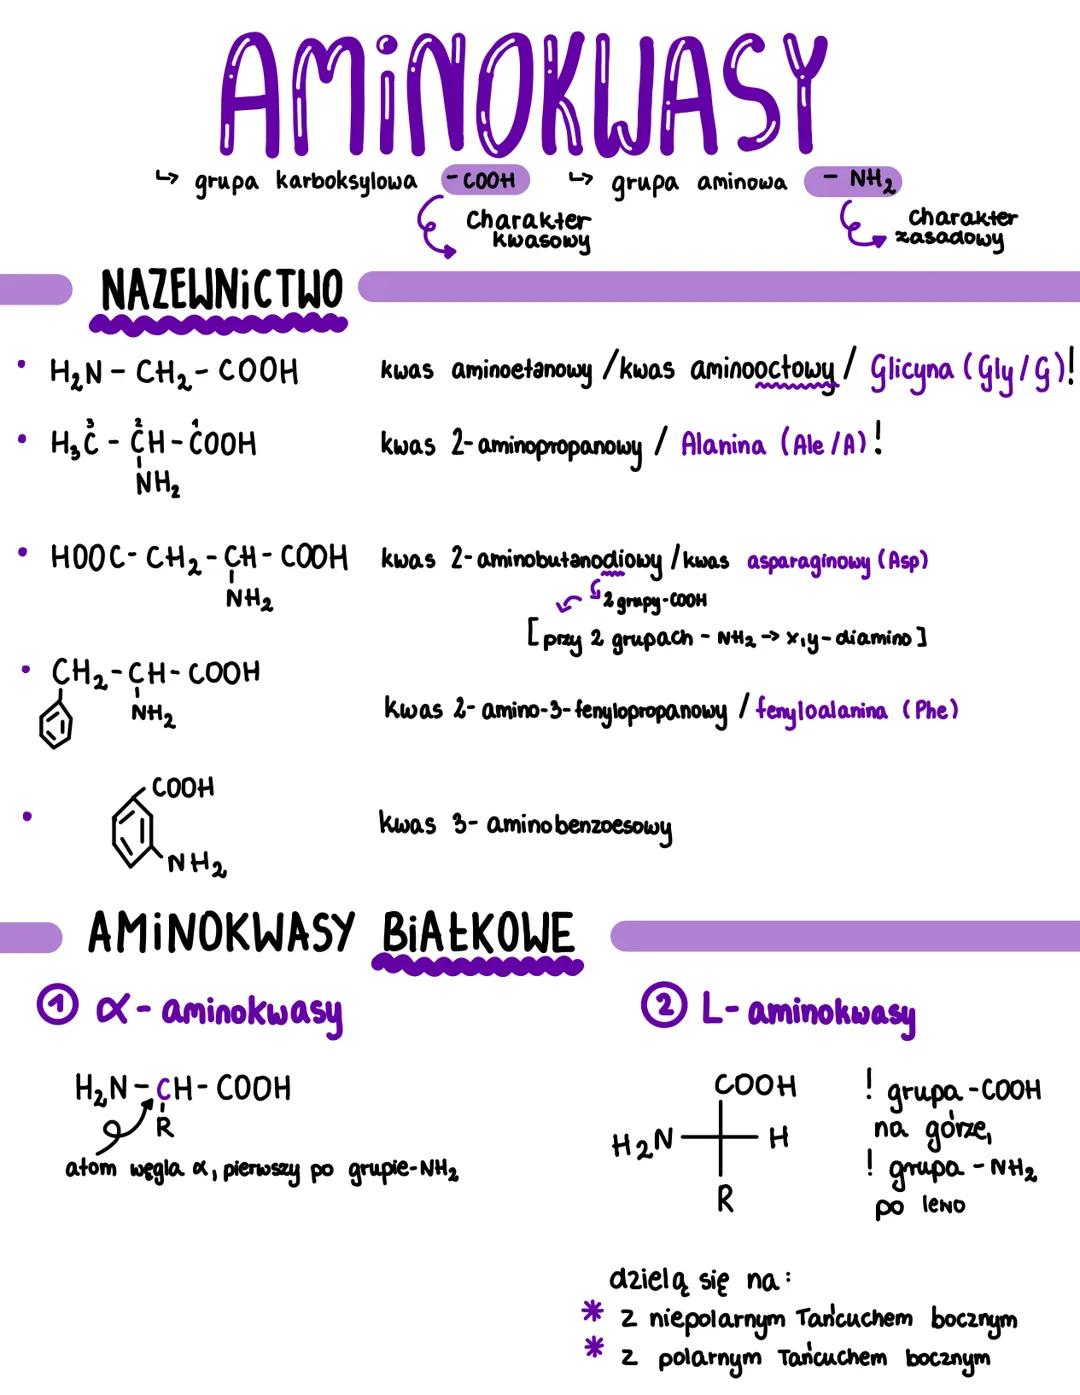 AMiNOKWASY
↳ grupa karboksylowa -COOH ↳ grupa aminowa - NH₂
Charakter kwasowy
Charakter zasadowy
NAZEWNiCTWO
• H₂N - CH₂ - COOH kwas aminoetanowy / kwas aminooctowy / Glicyna (Gly/G)!
3 2 1
• H₃C - CH - COOH kwas 2-aminopropanowy / Alanina (Ale/A)!
NH₂
• HOOC - CH₂ - CH - COOH kwas 2-aminobutanodiowy / kwas asparaginowy (Asp)
NH₂
2 grupy-COOH
[przy 2 grupach - NH₂ → x,y-diamino]
• CH₂ - CH - COOH
NH₂
kwas 2-amino-3-fenylopropanowy / fenyloalanina (Phe)
COOH
• kwas 3-aminobenzoesowy
NH₂
AMiNOKWASY BiAŁKOWE
① α-aminokwasy
H₂N - CH - COOH
R
atom węgla α, pierwszy po grupie-NH₂
② L-aminokwasy
COOH
H₂N H
R
! grupa -COOH
na górze,
! grupa - NH₂
po lewo
dzielą się na:
* z niepolarnym Tańcuchem bocznym
* z polarnym Tańcuchem bocznym